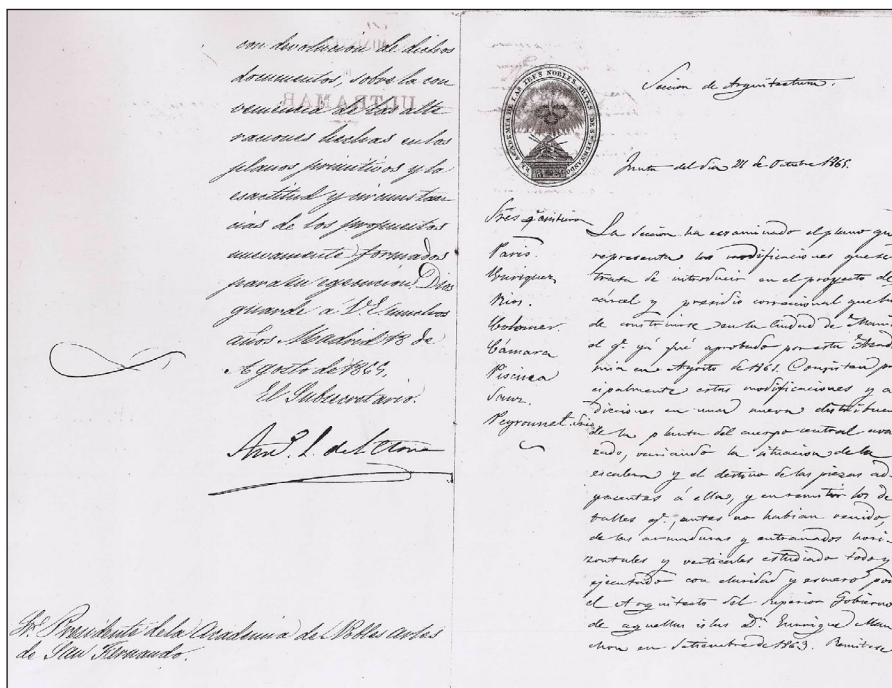 con devolucion de dichos
documentos, sobre la con
veniencia de las alte
raciones hechas en los
planos primitivos y la
esactitud y circunstan
cias de los propuestos
nuevamente formados
para su egecucion. Dios
guarde á V.E. muchos
años. Madrid 18 de
Agosto de 1865.
El Subsecretario.
Sr. Presidente de la Academia de Nobles artes
de San Fernando.
ULTRAMAR
ACADEMIA DE LAS TRES NOBLES ARTES DE S. FERNANDO
Seccion de Arquitectura.
Junta del dia 21 de Octubre 1865.
Sres. q. asistieron
Paris.
Enriquez
Rios.
Colomer.
Cámara
Piscina
Sanz.
Peyronnet. Srio.
La Seccion ha examinado el plano que
representa las modificaciones que se
trata de introducir en el proyecto de
carcel y presidio correccional que ha
de construirse en la Ciudad de Mani
el q. ya fué aprobado por esta Acade
mia en Agosto de 1861. Consisten pr
cipalmente estas modificaciones y a
diciones en una nueva distribuc
de la planta del cuerpo central avan
zado, variando la situacion de la
escalera y el destino de las piezas ad
yacentes á ella, y en remitir los de
talles q., antes no habian venido,
de las armaduras y entramados hori-
zontales y verticales estudiado todo y
ejecutado con claridad y esmero por
el Arquitecto del Superior Gobierno
de aquellas islas Dn. Enrique Man
chon en Setiembre de 1863. Remitese